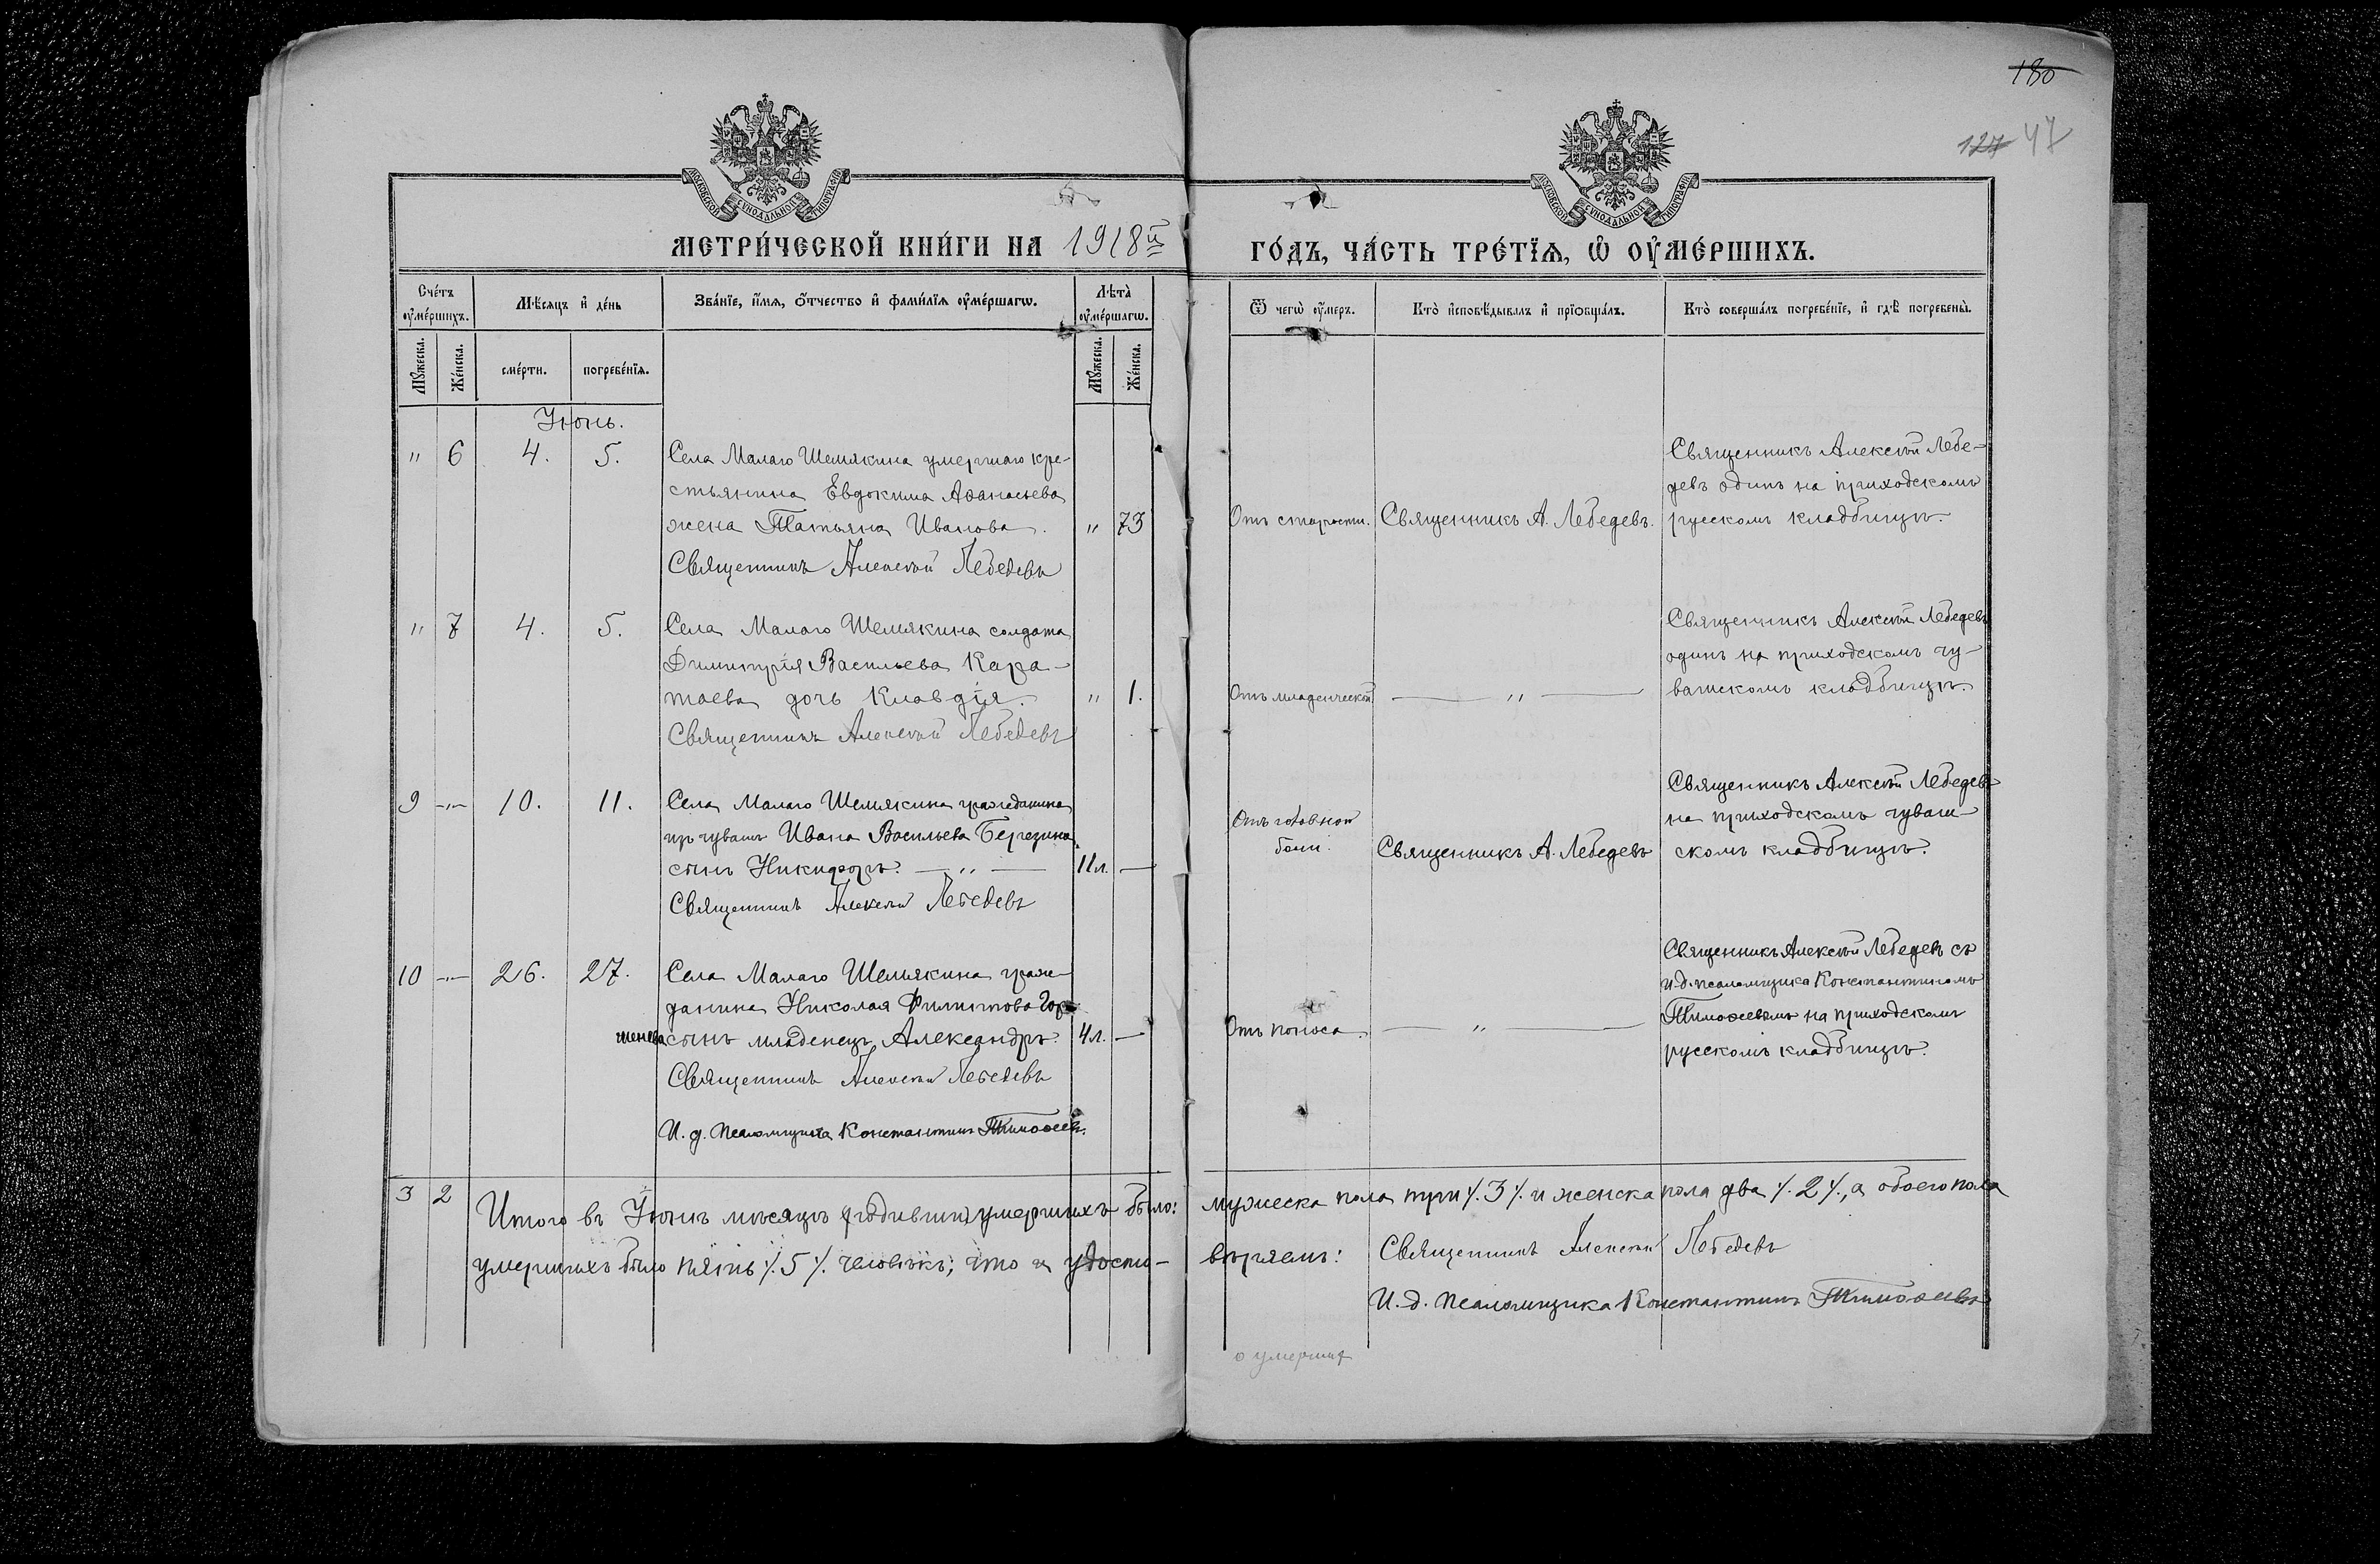 180
127 47
МОСКОВСКОЙ СѴНОДАЛЬНОЙ ТИПОГРАФІИ
МОСКОВСКОЙ СѴНОДАЛЬНОЙ ТИПОГРАФІИ
МЕТРИ́ЧЕСКОЙ КНИ́ГИ НА 1918й
ГО́ДЪ, ЧА́СТЬ ТРЕ́ТЇѦ, Ѡ҆ ОУ҆МЕ́РШИХЪ.
Сче́тъ оу҆ме́ршихъ.
Мꙋ́жеска.
Же́нска.
Мѣ́сѧцъ и҆ де́нь
сме́рти.
погребе́нїѧ.
Зва́нїе, и҆́мѧ, ѻ҆́тчество и҆ фами́лїѧ оу҆ме́ршагѡ.
Лѣ̑та оу҆ме́ршагѡ.
Мꙋ́жеска.
Же́нска.
Ѿ чегѡ̀ оу҆́меръ.
Кто̀ и҆сповѣ́дывалъ и҆ прїѡбща́лъ.
Кто̀ соверша́лъ погребе́нїе, и҆ гдѣ̀ погребены̀.
Іюнь.
" 6 4. 5.
Села Малаго Шемякина умершаго кре-
стьянина Евдокима Аѳанасьева
жена Татьяна Иванова.
" 73
Священникъ Алексѣй Лебедевъ
Отъ старости.
Священникъ А. Лебедевъ.
Священникъ Алексѣй Лебе-
девъ одинъ на приходскомъ
русскомъ кладбищѣ.
" 7 4. 5.
Села Малаго Шемякина солдата
Димитрія Васильева Кара-
таева дочь Клавдія.
" 1.
Священникъ Алексѣй Лебедевъ
Отъ младенческой
— " —
Священникъ Алексѣй Лебедевъ
одинъ на приходскомъ чу-
вашскомъ кладбищѣ.
9 -"- 10. 11.
Села Малаго Шемякина гражданина
изъ чувашъ Ивана Васильева Березина
сынъ Никифоръ. — " —
11л. —
Священникъ Алексѣй Лебедевъ
Отъ головной
боли.
Священникъ А. Лебедевъ
Священникъ Алексѣй Лебедевъ
на приходскомъ чуваш-
скомъ кладбищѣ.
10 -"- 26. 27.
Села Малаго Шемякина граж-
данина Николая Филиппова Гор-
шенева сынъ младенецъ Александръ.
4л. —
Священникъ Алексѣй Лебедевъ
И. д. псаломщика Константинъ Тимоѳеевъ.
Отъ поноса.
— " —
Священникъ Алексѣй Лебедевъ съ
и.д. псаломщика Константиномъ
Тимоѳеевымъ на приходскомъ
русскомъ кладбищѣ.
3 2
Итого въ Іюнѣ мѣсяцѣ умершихъ было: мужеска пола три /.3/. и женска пола два /.2/., а обоего пола
умершихъ было пять /.5/. человѣкъ; что и удосто- вѣряемъ: Священникъ Алексѣй Лебедевъ
И. д. псаломщика Константинъ Тимоѳеевъ
о умерших